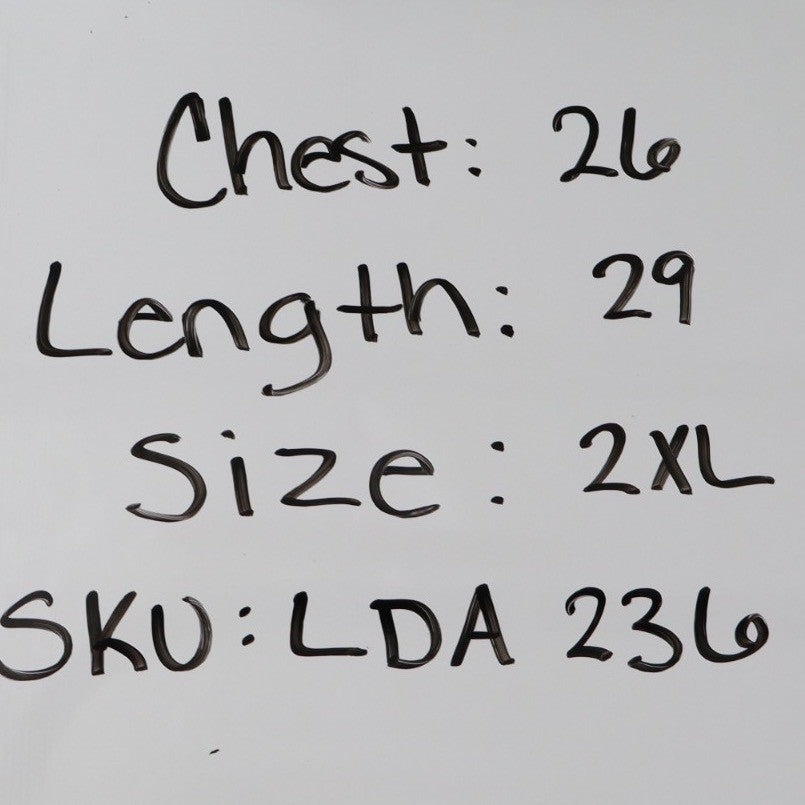 Chest: 26
Length: 29
Size: 2XL
SKU: LDA 236